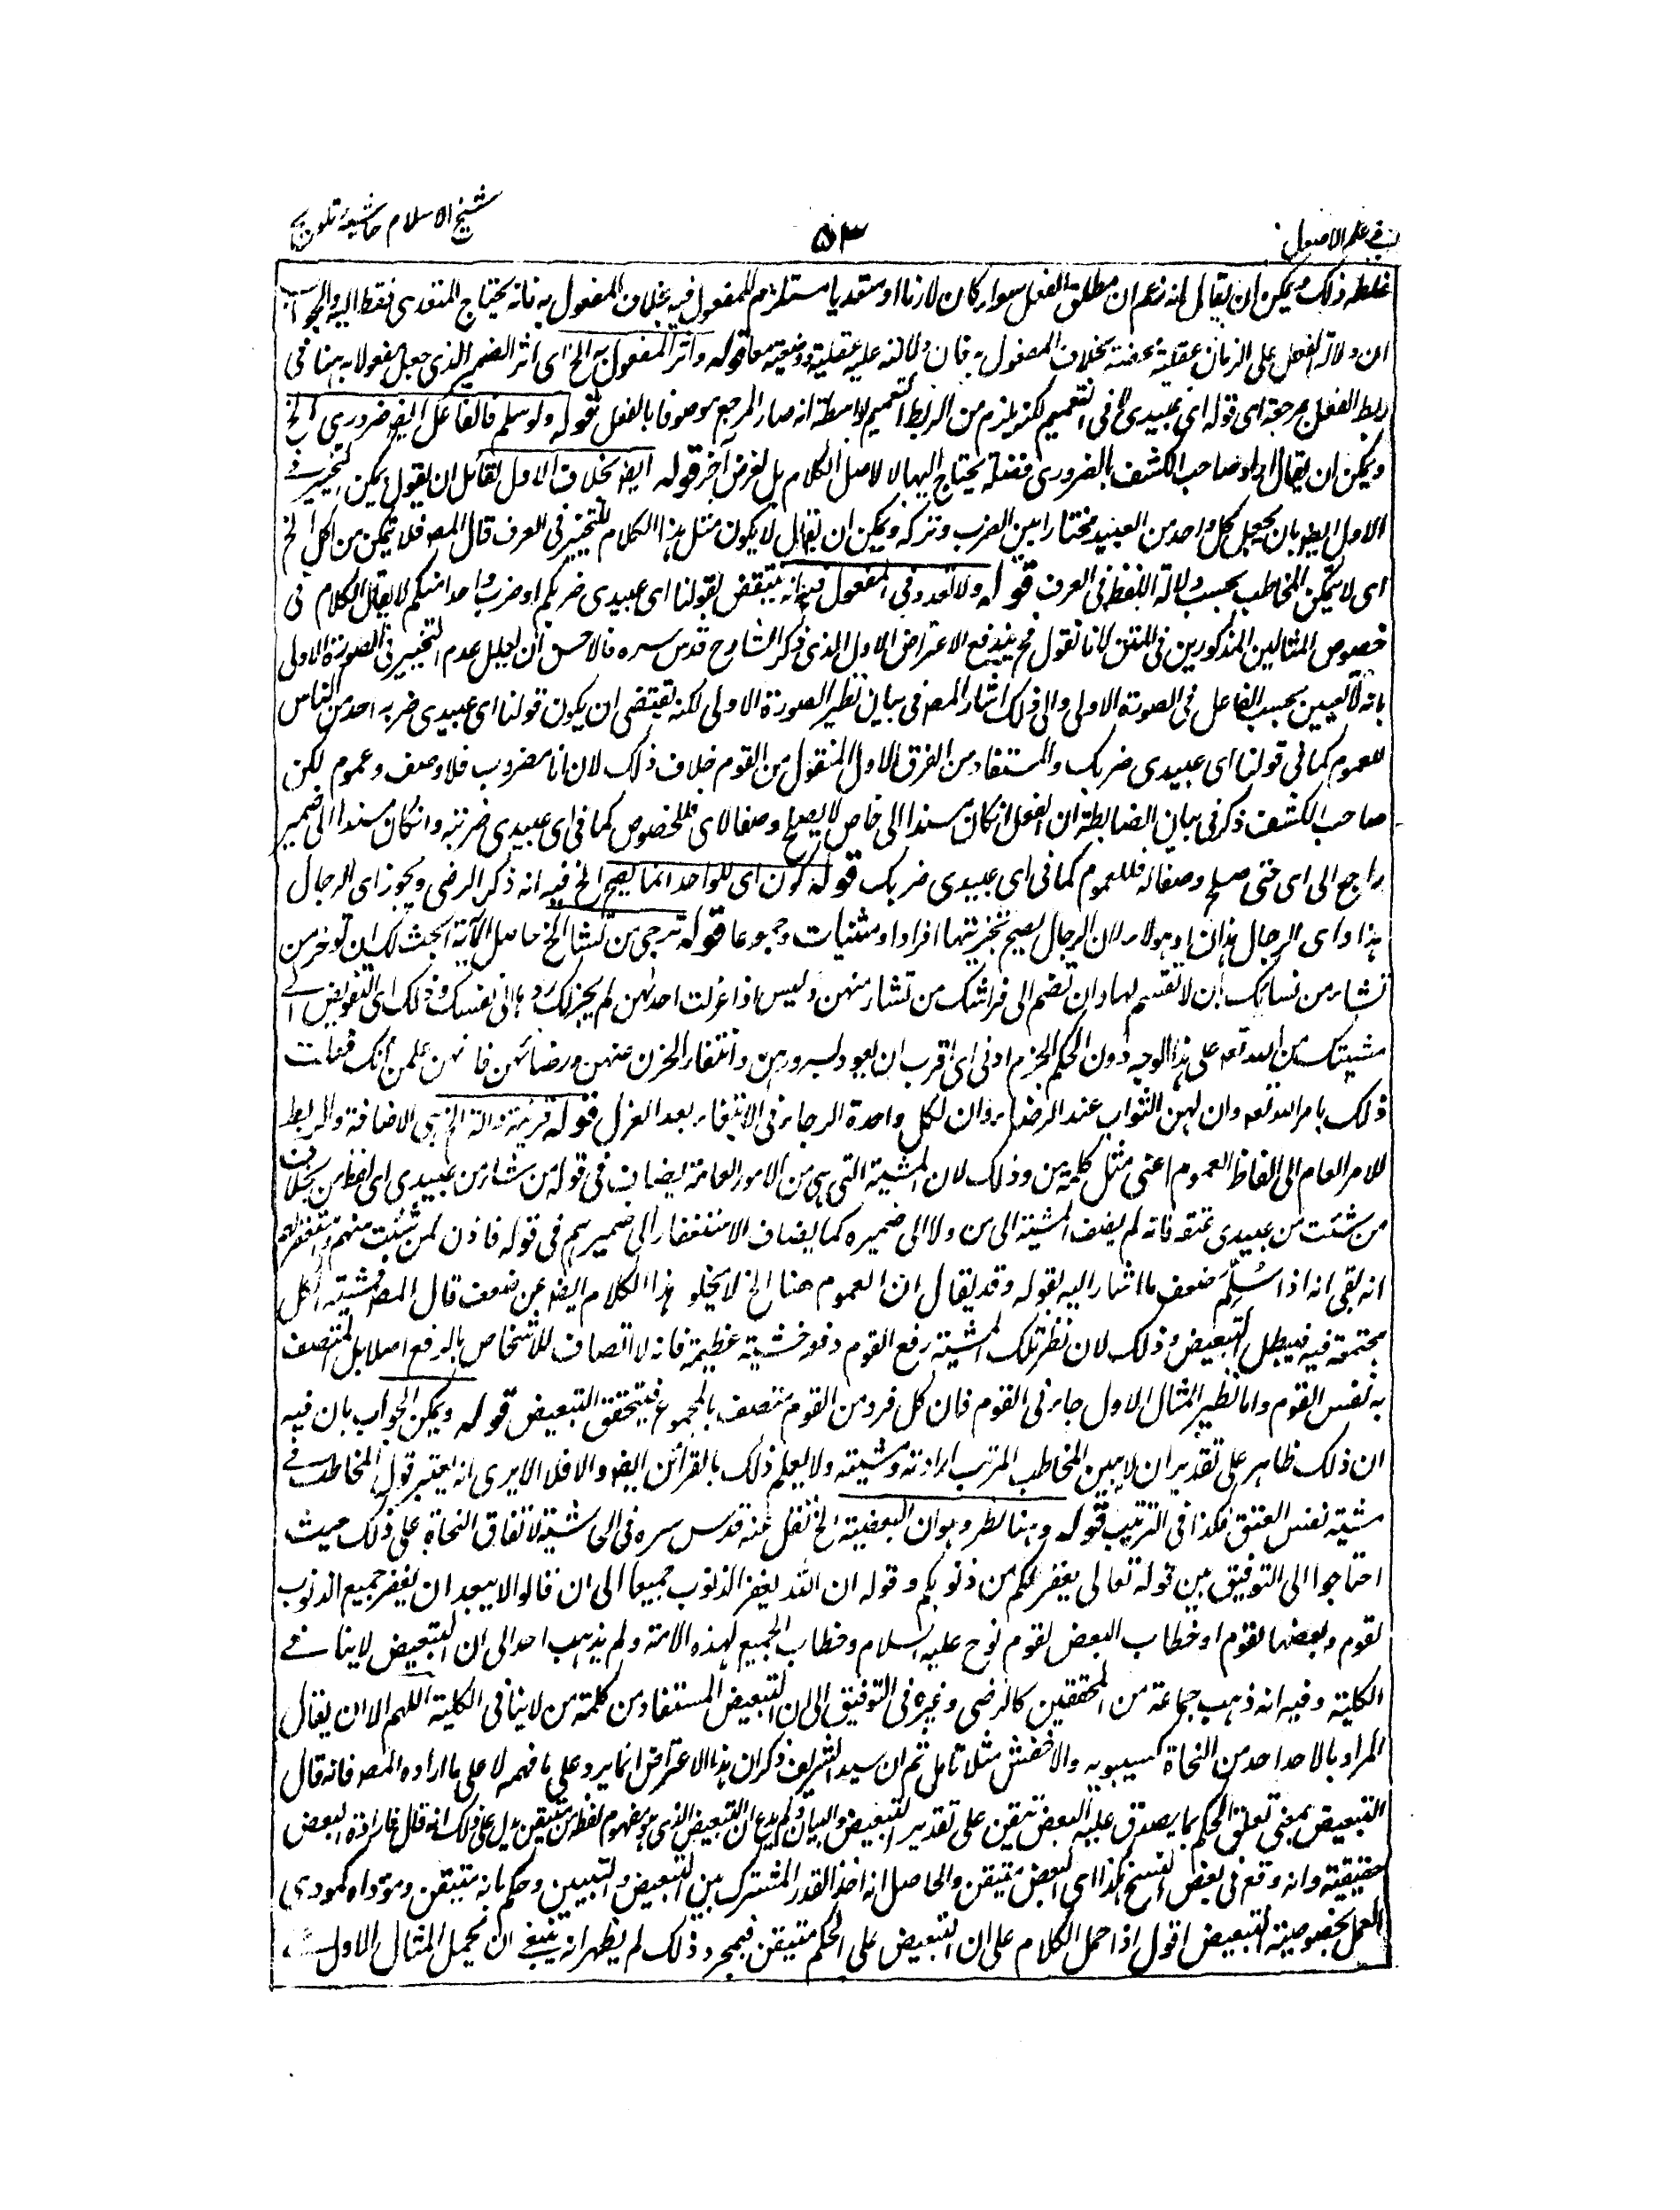 في علم الاصول
۵۳
شيخ الاسلام حاشية تلويح
غلطه ذلك ويمكن ان يقال انه زعم ان مطلق الفعل سواء كان لازما او متعديا مستلزم للمفعول فيه بخلاف المفعول به فانه يحتاج المتعدى فقط اليه والجواب
ان دلالة الفعل على الزمان عقلية محضة بخلاف المفعول به فان دلالته عليه عقلية ووضعية معا قوله واثر المفعول به الخ اى اثر الضمير الذى جعل مفعولا به هنا فى
ربط الفعل بمرجعه اى قوله اى عبيدى لا فى التعميم لكنه يلزم من الربط التعميم لواسطة انه صار المرجع موصوفا بالفعل قوله ولو سلم فالفاعل ايضا ضرورى الخ
ويمكن ان يقال اراد صاحب الكشف بالضرورى فضلة يحتاج اليها لا لاصل الكلام بل لغرض آخر قوله ايضا بخلاف الاول لقائل ان يقول يمكن التخيير فے
الاول ايضا بان يجعل كل واحد من العبيد مختارا بين الضرب وتركه ويمكن ان يقال لا يكون مثل هذا الكلام للتخيير فى العرف قال المصـ فلا يتمكن من اكل الخ
اى لا يتمكن المخاطب بحسب دلالة اللفظ فى العرف قوله ولا تعدد فى المفعول فيه انه ينتقض بقولنا اى عبيدى ضربكم او ضرب واحدا منكم لا يقال الكلام فى
خصوص المثالين المذكورين فى المتن لانا نقول فح يندفع الاعتراض الاول الذى ذكر الشارح قدس سره فالاحسن ان يعلل عدم التخيير فى الصورة الاولى
بانه لا تعيين بحسب الفاعل فى الصورة الاولى والى ذلك اشار المصـ فى بيان نظير الصورة الاولى لكنه يقتضى ان يكون قولنا اى عبيدى ضربه احد من الناس
للعموم كما فى قولنا اى عبيدى ضربك والمستفاد من الفرق الاول المنقول من القوم خلاف ذلك لان انا مضروب فلا وصف وعموم لكن
صاحب الكشف ذكر فى بيان الضابطة ان الفعل ان كان مسندا الى خاص لا يصلح وصفا لاى فللخصوص كما فى اى عبيدى ضربته وان كان مسندا الى ضمير
راجع الى اى حتى صلح وصفا له فللعموم كما فى اى عبيدى ضربك قوله كون اى للواحد انما يصح الخ فيه انه ذكر الرضى ويجوز اى الرجال
هذا واى الرجال هذان او هولاء لان الرجال يصح تجزيتها افرادا ومثنيات وجموعا قوله ترجى من تشاء الخ حاصل الآية ابحث لك ان تؤخر من
تشاء من نسائك بان لا تقسم لها وان تضم الى فراشك من تشاء منهن وليس اذا عزلت احدهن لم يجز لك ردها الى نفسك وذلك اى التفويض الے
مشيتك من الله تعـ على هذا الوجه دون الحكم الجزم ادنى اى اقرب ان يعود لسرورهن وانتفاء الحزن عنهن ورضائهن فانهن علمن انك فعلت
ذلك بامر الله تعـ وان لهن الثواب عند الرضاء وان لكل واحدة الرجاء فى الابتغاء بعد العزل قوله قرينة دالة الخ هى الاضافة والربط
للامر العام الى الفاظ العموم اعنى مثل كلمة من وذلك لان المشية التى هى من الامور العامة يضاف فى قوله من شاء من عبيدى اى لفظ من بخلاف
من شئت من عبيدى عتقه فانه لم يضف المشية الى من ولا الى ضميره كما يضاف الاستغفار الى ضميرهم فى قوله فاذن لمن شئت منهم واستغفر لهم
انه بقى انه اذا سلم ضعف ما اشار اليه بقوله وقد يقال ان العموم هنا الخ لا يخلو هذا الكلام ايضا عن ضعف قال المصـ فمشيته الكل
مجتمعة فيه فيبطل التبعيض وذلك لان نظر تلك المشية رفع القوم دفع خشبة عظيمة فانه لا اتصاف للاشخاص بالرفع اصلا بل المتصف
به نفس القوم واما نظير المثال الاول جاءنى القوم فان كل فرد من القوم متصف بالمجموع فيتحقق التبعيض قوله ويمكن الجواب بان فيه
ان ذلك ظاهر على تقدير ان لا يبين المخاطب المرتب ارادته ومشيته ولا يعلم ذلك بالقرائن ايضا والا فلا الا يرى انه يعتبر قول المخاطب فے
مشية نفس العتق فكذا فى الترتيب قوله وهنا نظر وهو ان البعضية الخ نقل عنه قدس سره فى الحاشية لاتفاق النحاة على ذلك حيث
احتاجوا الى التوفيق بين قوله تعالى يغفر لكم من ذنوبكم وقوله ان الله يغفر الذنوب جميعا الى ان قالوا لا يبعد ان يغفر جميع الذنوب
لقوم وبعضها لقوم او خطاب البعض لقوم نوح عليه السلام وخطاب الجميع لهذه الامة ولم يذهب احد الى ان التبعيض لا ينافے
الكلية وفيه انه ذهب جماعة من المحققين كالرضى وغيره فى التوفيق الى ان التبعيض المستفاد من كلمة من لا ينافى الكلية اللهم الا ان يقال
المراد بالاحد احد من النحاة كسيبويه والاخفش مثلا تامل ثم ان سيد الشريف ذكر ان هذا الاعتراض انما يرد على ما فهمه لا على ما اراده المصـ فانه قال
التبعيض بمعنى تعلق الحكم بما يصدق عليه البعض متيقن على تقدير التبعيض والبيان ولم يدع ان التبعيض الذى هو مفهوم لفظ من متيقن يدل على ذلك انه قال فارادة البعض
حقيقية وانه وقع فى بعض النسخ هكذا اى البعض متيقن والحاصل انه اخذ القدر المشترك بين التبعيض والتبيين وحكم بانه متيقن ومؤداه كمودى
العمل بخصوصية التبعيض اقول اذا حمل الكلام على ان التبعيض على الحكم متيقن فبمجرد ذلك لم يظهر انه ينبغى ان يحمل المثال الاول